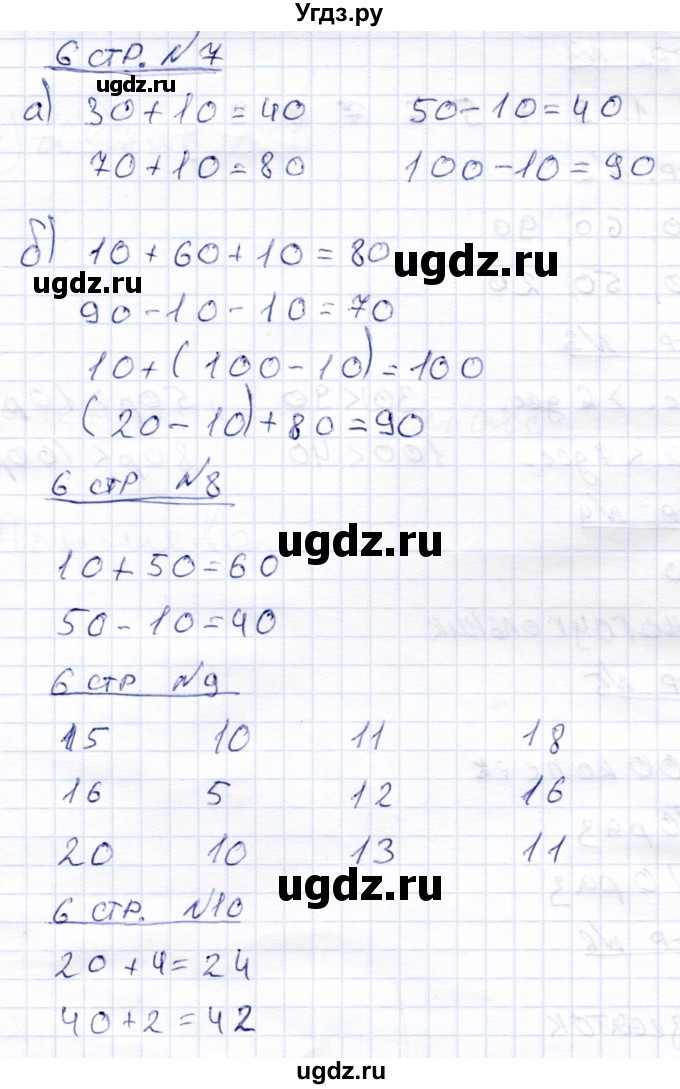 Угдз.ру
6 стр. №7
ugdz.ru
а) 30+10=40 50-10=40
70+10=80 100-10=90
б) 10+60+10=80
ugdz.ru
ugdz.ru
90-10-10=70
10+(100-10)=100
(20-10)+80=90
6 стр №8
ugdz.ru
10+50=60
50-10=40
6 стр №9
15 10 11 18
16 5 12 16
20 10 13 11
ugdz.ru
6 стр. №10
20+4=24
40+2=42
ugdz.ru